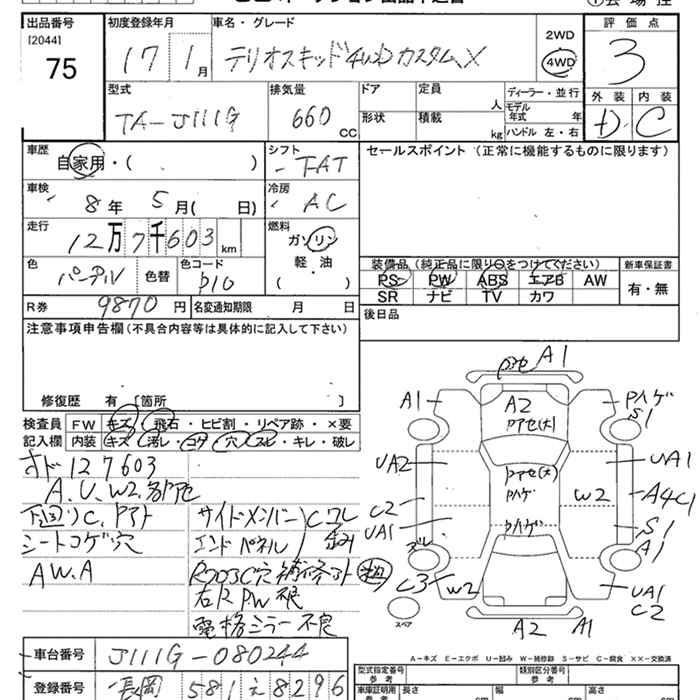 出品番号 初度登録年月 車名・グレード 評価点
[2044]
75
17 1月 テリオスキッド 4WD カスタムX
2WD
4WD
3
型式 排気量 ドア 定員 ディーラー・並行 外装 内装
TA-J111G 660 CC 人 モデル年式 年
形状 積載 kg ハンドル 左・右
D C
車歴 シフト セールスポイント (正常に機能するものに限ります)
自家用・( ) FAT
車検 冷房
8年 5月( 日) AC
走行 燃料
12万7千603km ガソリン
軽・油
( )
色 色替 色コード
パール P10
装備品 (純正品に限り○をつけてください) 新車保証書
PS PW ABS エアB AW
SR ナビ TV カワ
有・無
R券 9870円 名変通知期限 月 日
後日品
注意事項申告欄(不具合内容等は具体的に記入して下さい)
修復歴 有 [箇所 ]
検査員 FW キズ・飛石・ヒビ割・リペア跡・×要
記入欄 内装 キズ・汚レ・コゲ・穴・スレ・キレ・破レ
127603
A.U.W2.
下廻りC.
サイドメンバー
シートコゲ穴
エンドパネル
AW.A
右R P.W 不良
電格ミラー不良
A1
A1
A2
Pハゲ
S1
UA2
UA1
Pハゲ
W2
A4C1
C2
UA1
Pハゲ
S1
A1
C3
W2
UA1
C2
スペア
A2
A1
A-キズ E-エクボ U-凹み W-補修跡 S-サビ C-腐食 ××-交換済
車台番号 J111G-080244
型式指定番号 参考 類別区分番号 参考
登録番号 長岡 581 え 8296
車庫証明用 参考 長さ cm 幅 cm 高さ cm